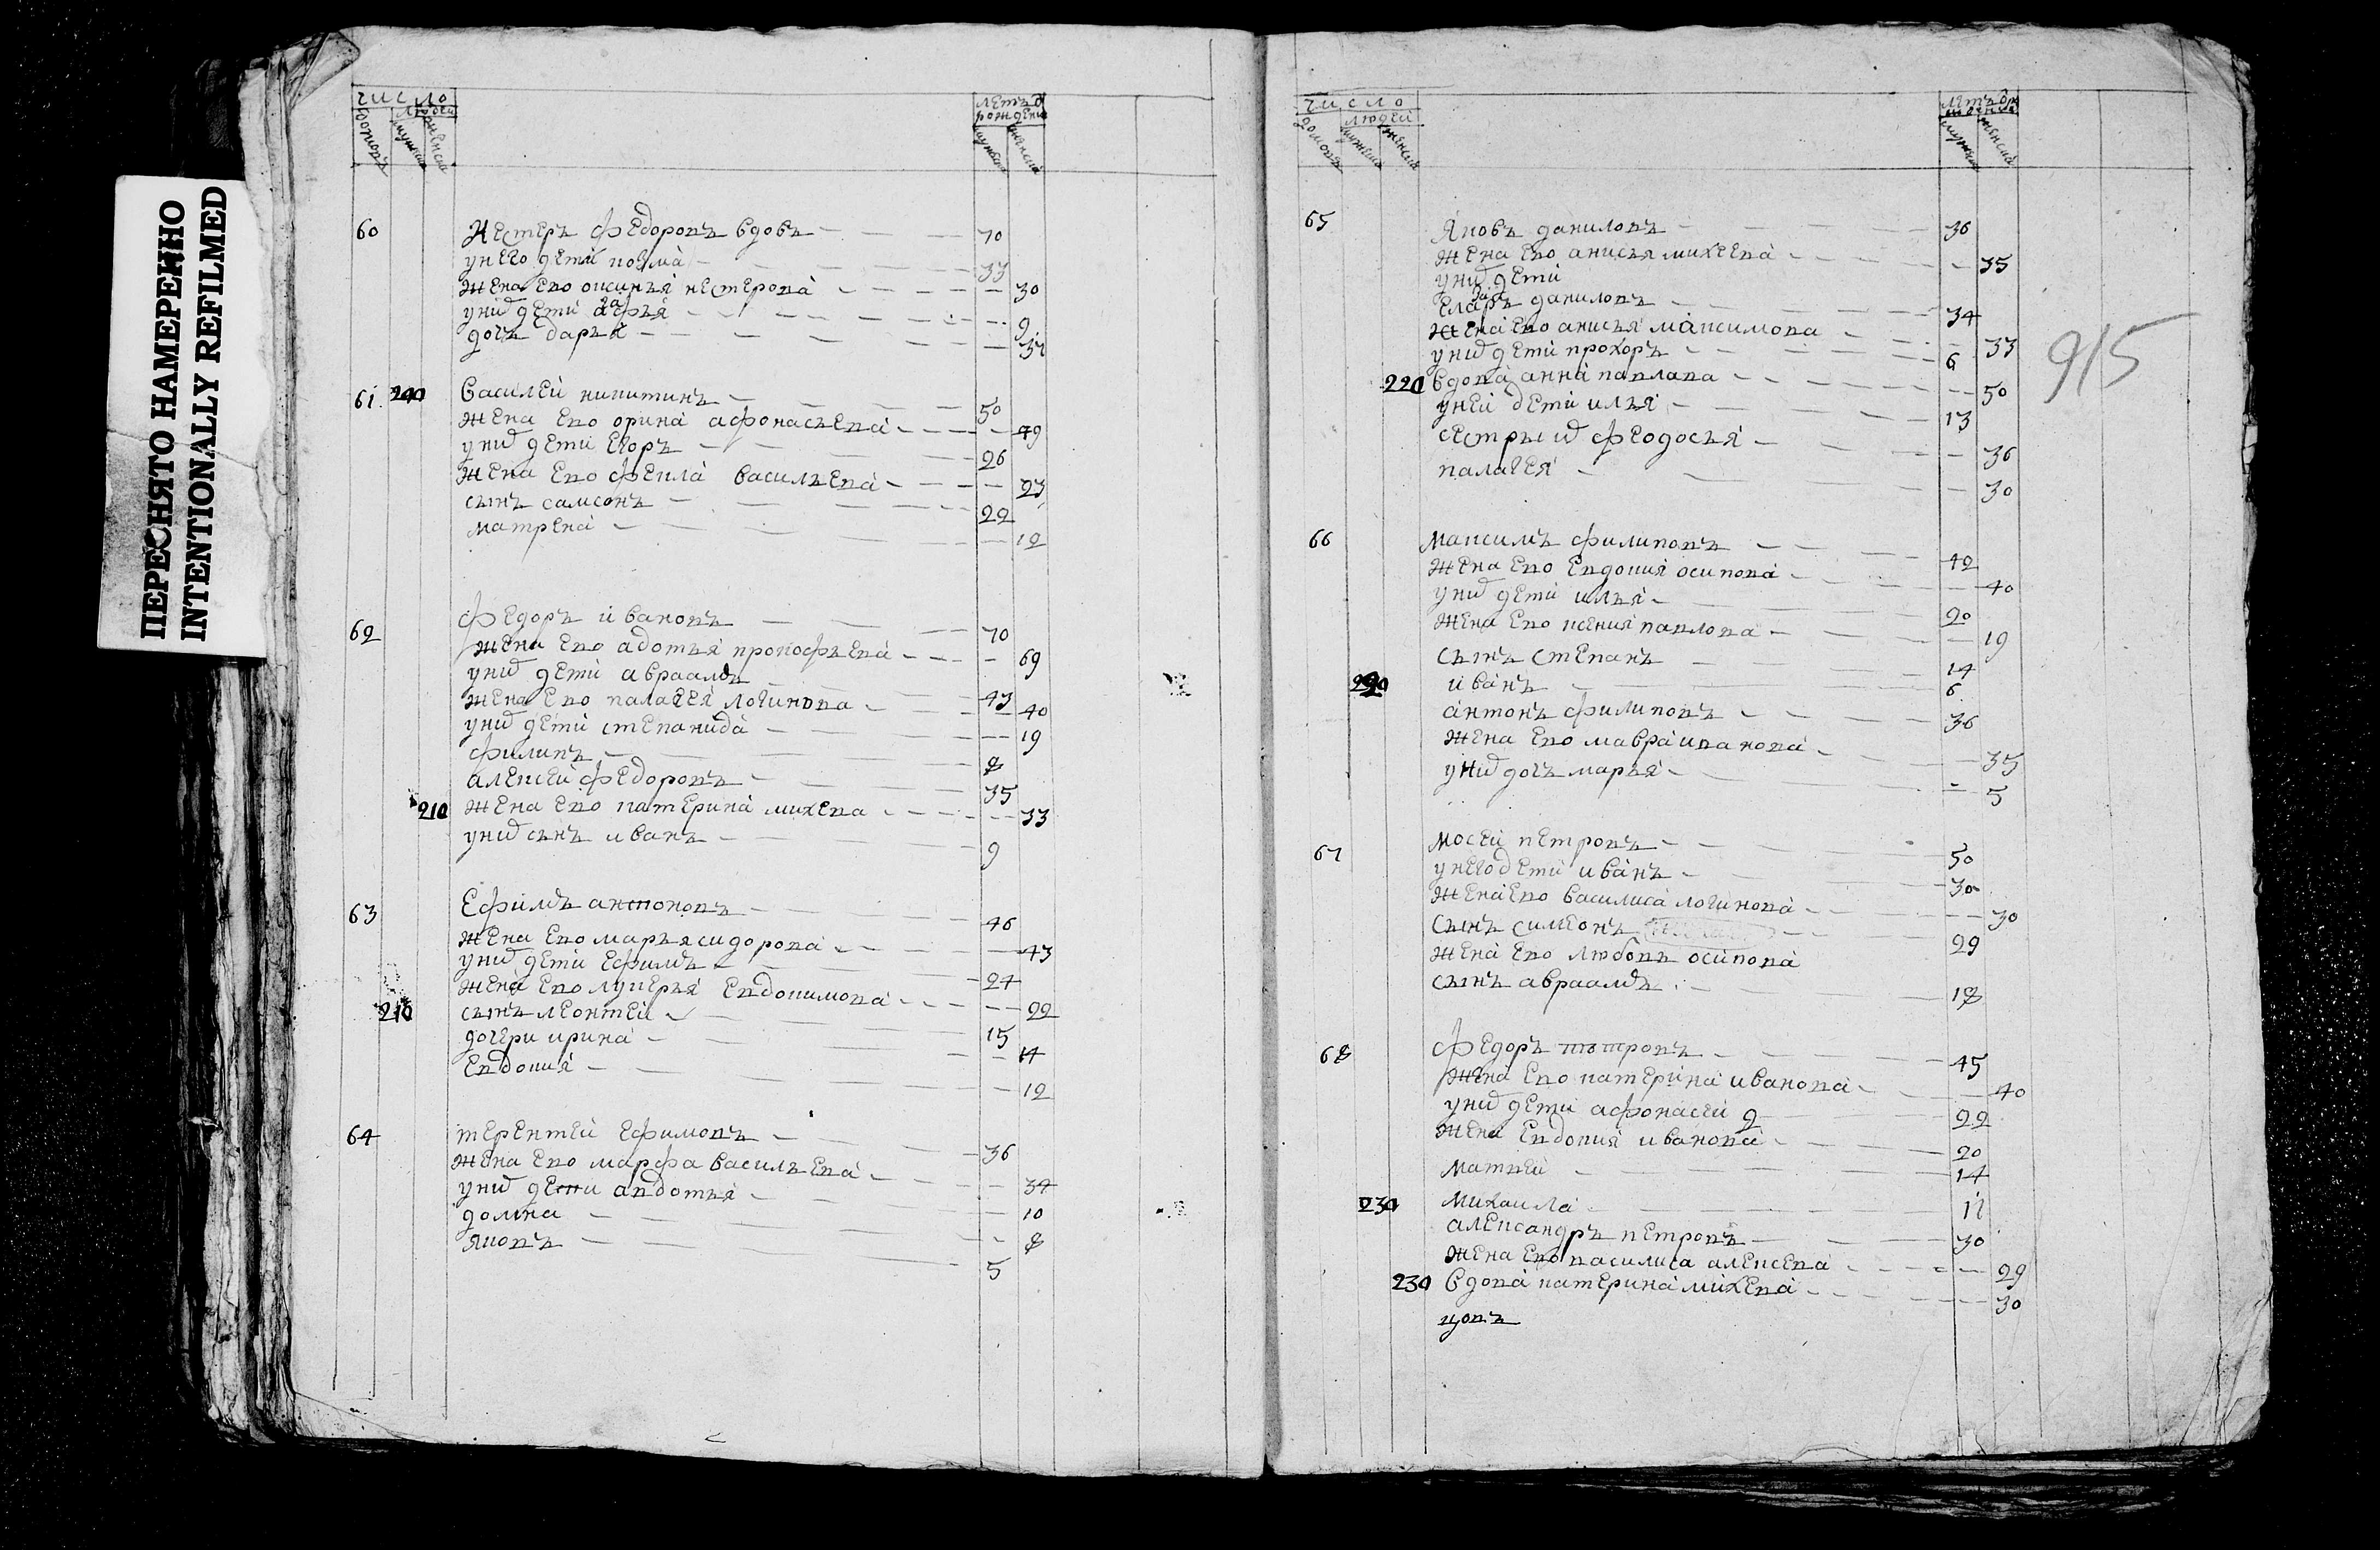 ПЕРЕСНЯТО НАМЕРЕННО
INTENTIONALLY REFILMED
число
людей
домовъ
мужеска
женска
летъ
рождения
мужеска
женска
60 Нестеръ федоровъ вдовъ 70
унего дети козма 33
жена ево оксинья нестерова 30
унихъ дети агафья 9
дочь дарья 37
61 200 василей никитинъ 50
жена ево орина афонасьева 49
унихъ дети егоръ 26
жена ево фекла васильева 23
сынъ самсонъ 22
матрена 12
62 федоръ ивановъ 70
жена ево адотья прокофьева 69
унихъ дети авраамъ 43
жена ево палагея логинова 40
унихъ дети степанида 19
филипъ 8
алексей федоровъ 35
210 жена ево катерина михева 33
унихъ сынъ иванъ 9
63 ефимъ антоновъ 46
жена ево марья сидорова 43
унихъ дети ефимъ 24
жена ево лукерья евдокимова 22
210 сынъ леонтей 15
дочери ирина 14
евдокия 12
64 терентей ефимовъ 36
жена ево марфа васильева 34
унихъ дети авдотья 10
домна 8
яковъ 5
число
людей
домовъ
мужеска
женска
летъ
мужеска
женска
915
65 яковъ даниловъ 36
жена ево анисья михеева 35
унихъ дети
елизаръ даниловъ 34
жена ево анисья максимова 33
унихъ дети прохоръ 6
220 вдова анна павлава 50
уней дети илья 13
сестры ихъ феодосья 36
палагея 30
66 максимъ филиповъ 42
жена ево евдокия осипова 40
унихъ дети илья 20
жена ево ксения павлова 19
сынъ степанъ 14
220 иванъ 6
антонъ филиповъ 36
жена ево мавра иванова 35
унихъ дочь марья 5
67 мосей петровъ 50
унего дети иванъ 30
жена ево василиса логинова 30
сынъ симеонъ 29
жена ево любовь осипова
сынъ авраамъ 18
68 федоръ петровъ 45
жена ево катерина иванова 40
унихъ дети афонасей 22
жена евдокия иванова 20
матвей 14
230 михаила 11
александръ петровъ 30
жена ево василиса алексева 29
230 вдова катерина михева 30